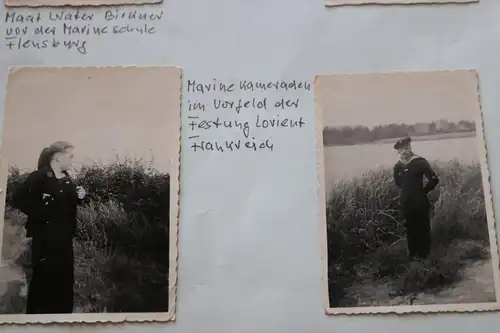 Maat Walter Birkner
vor der Marineschule
Flensburg
Marine Kameraden
im Vorfeld der
Festung Lorient
Frankreich